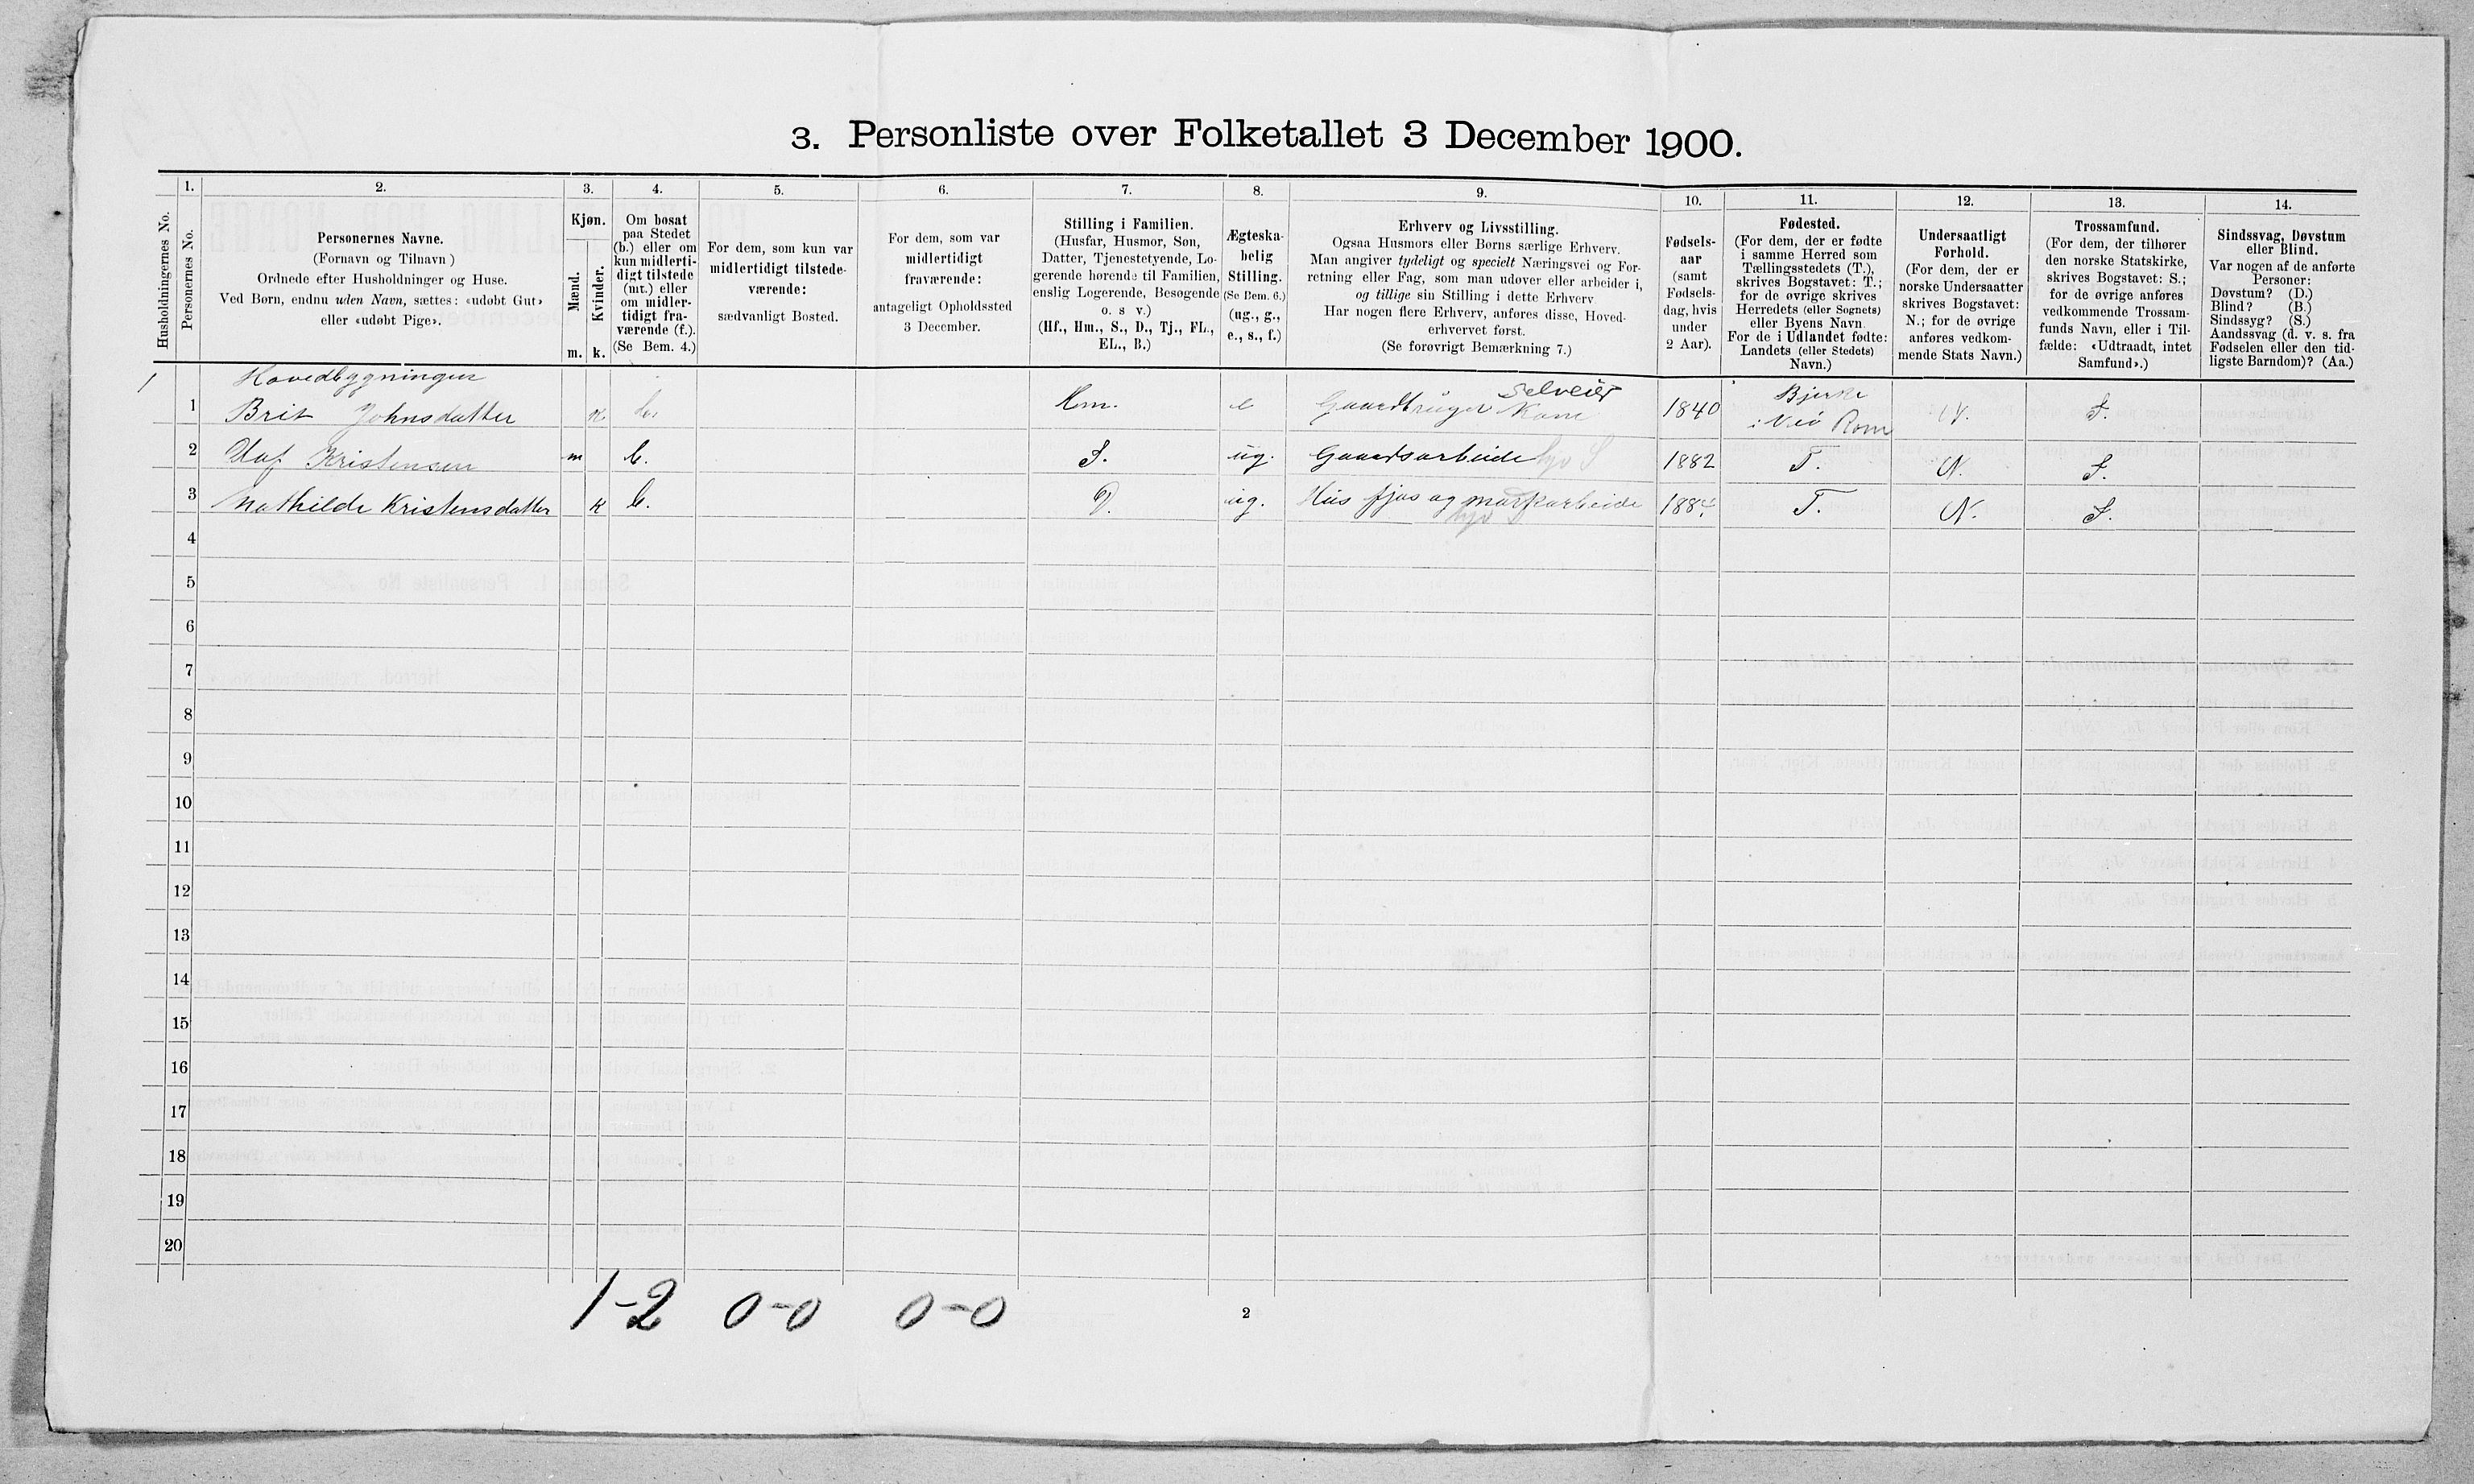 3. Personliste over Folketallet 3 December 1900.
Husholdningernes No.
1.
Personernes No.
2.
Personernes Navne.
(Fornavn og Tilnavn )
Ordnede efter Husholdninger og Huse.
Ved Børn, endnu uden Navn, sættes: «udøbt Gut»
eller «udøbt Pige».
3.
Kjøn.
Mænd.
Kvinder.
m.
k.
4.
Om bosat
paa Stedet
(b.) eller om
kun midlerti-
digt tilstede
(mt.) eller
om midler-
tidigt fra-
værende (f.).
(Se Bem. 4.)
5.
For dem, som kun var
midlertidigt tilstede-
værende:
sædvanligt Bosted.
6.
For dem, som var
midlertidigt
fraværende:
antageligt Opholdssted
3 December.
7.
Stilling i Familien.
(Husfar, Husmor, Søn,
Datter, Tjenestetyende, Lo-
gerende hørende til Familien,
enslig Logerende, Besøgende
o. s v.)
(Hf., Hm., S., D., Tj., FL.,
EL., B.)
8.
Ægteska-
belig
Stilling.
(Se Bem. 6.)
(ug., g.,
e., s., f.)
9.
Erhverv og Livsstilling.
Ogsaa Husmors eller Børns særlige Erhverv.
Man angiver tydeligt og specielt Næringsvei og For-
retning eller Fag, som man udøver eller arbeider i,
og tillige sin Stilling i dette Erhverv
Har nogen flere Erhverv, anføres disse, Hoved-
erhvervet først.
(Se forøvrigt Bemærkning 7.)
10.
Fødsels-
aar
(samt
Fødsels-
dag, hvis
under
2 Aar).
11.
Fødested.
(For dem, der er fødte
i samme Herred som
Tællingsstedets (T.),
skrives Bogstavet: T.;
for de øvrige skrives
Herredets (eller Sognets)
eller Byens Navn.
For de i Udlandet fødte:
Landets (eller Stedets)
Navn.)
12.
Undersaatligt
Forhold.
(For dem, der er
norske Undersaatter
skrives Bogstavet:
N.; for de øvrige
anføres vedkom-
mende Stats Navn.)
13.
Trossamfund.
(For dem, der tilhører
den norske Statskirke,
skrives Bogstavet: S.;
for de øvrige anføres
vedkommende Trossam-
funds Navn, eller i Til-
fælde: «Udtraadt, intet
Samfund».)
14.
Sindssvag, Døvstum
eller Blind.
Var nogen af de anførte
Personer:
Døvstum? (D.)
Blind? (B.)
Sindssyg? (S.)
Aandssvag (d. v. s. fra
Fødselen eller den tid-
ligste Barndom)? (Aa.)
1 Hovedbygningen
1 Brit Johnsdatter k b. Hm. e Gaardbruger Kone Selveier 1840 Bjerke i Veø Rom N. S.
2 Kristensen m b. S. ug. Gaardsarbeide 1882 T. N. S.
3 Mathilde Kristensdatter k b. D. ug. Hus fjøs og markarbeide 1884 T. N. S.
4
5
6
7
8
9
10
11
12
13
14
15
16
17
18
19
20
1-2 0-0 0-0
2